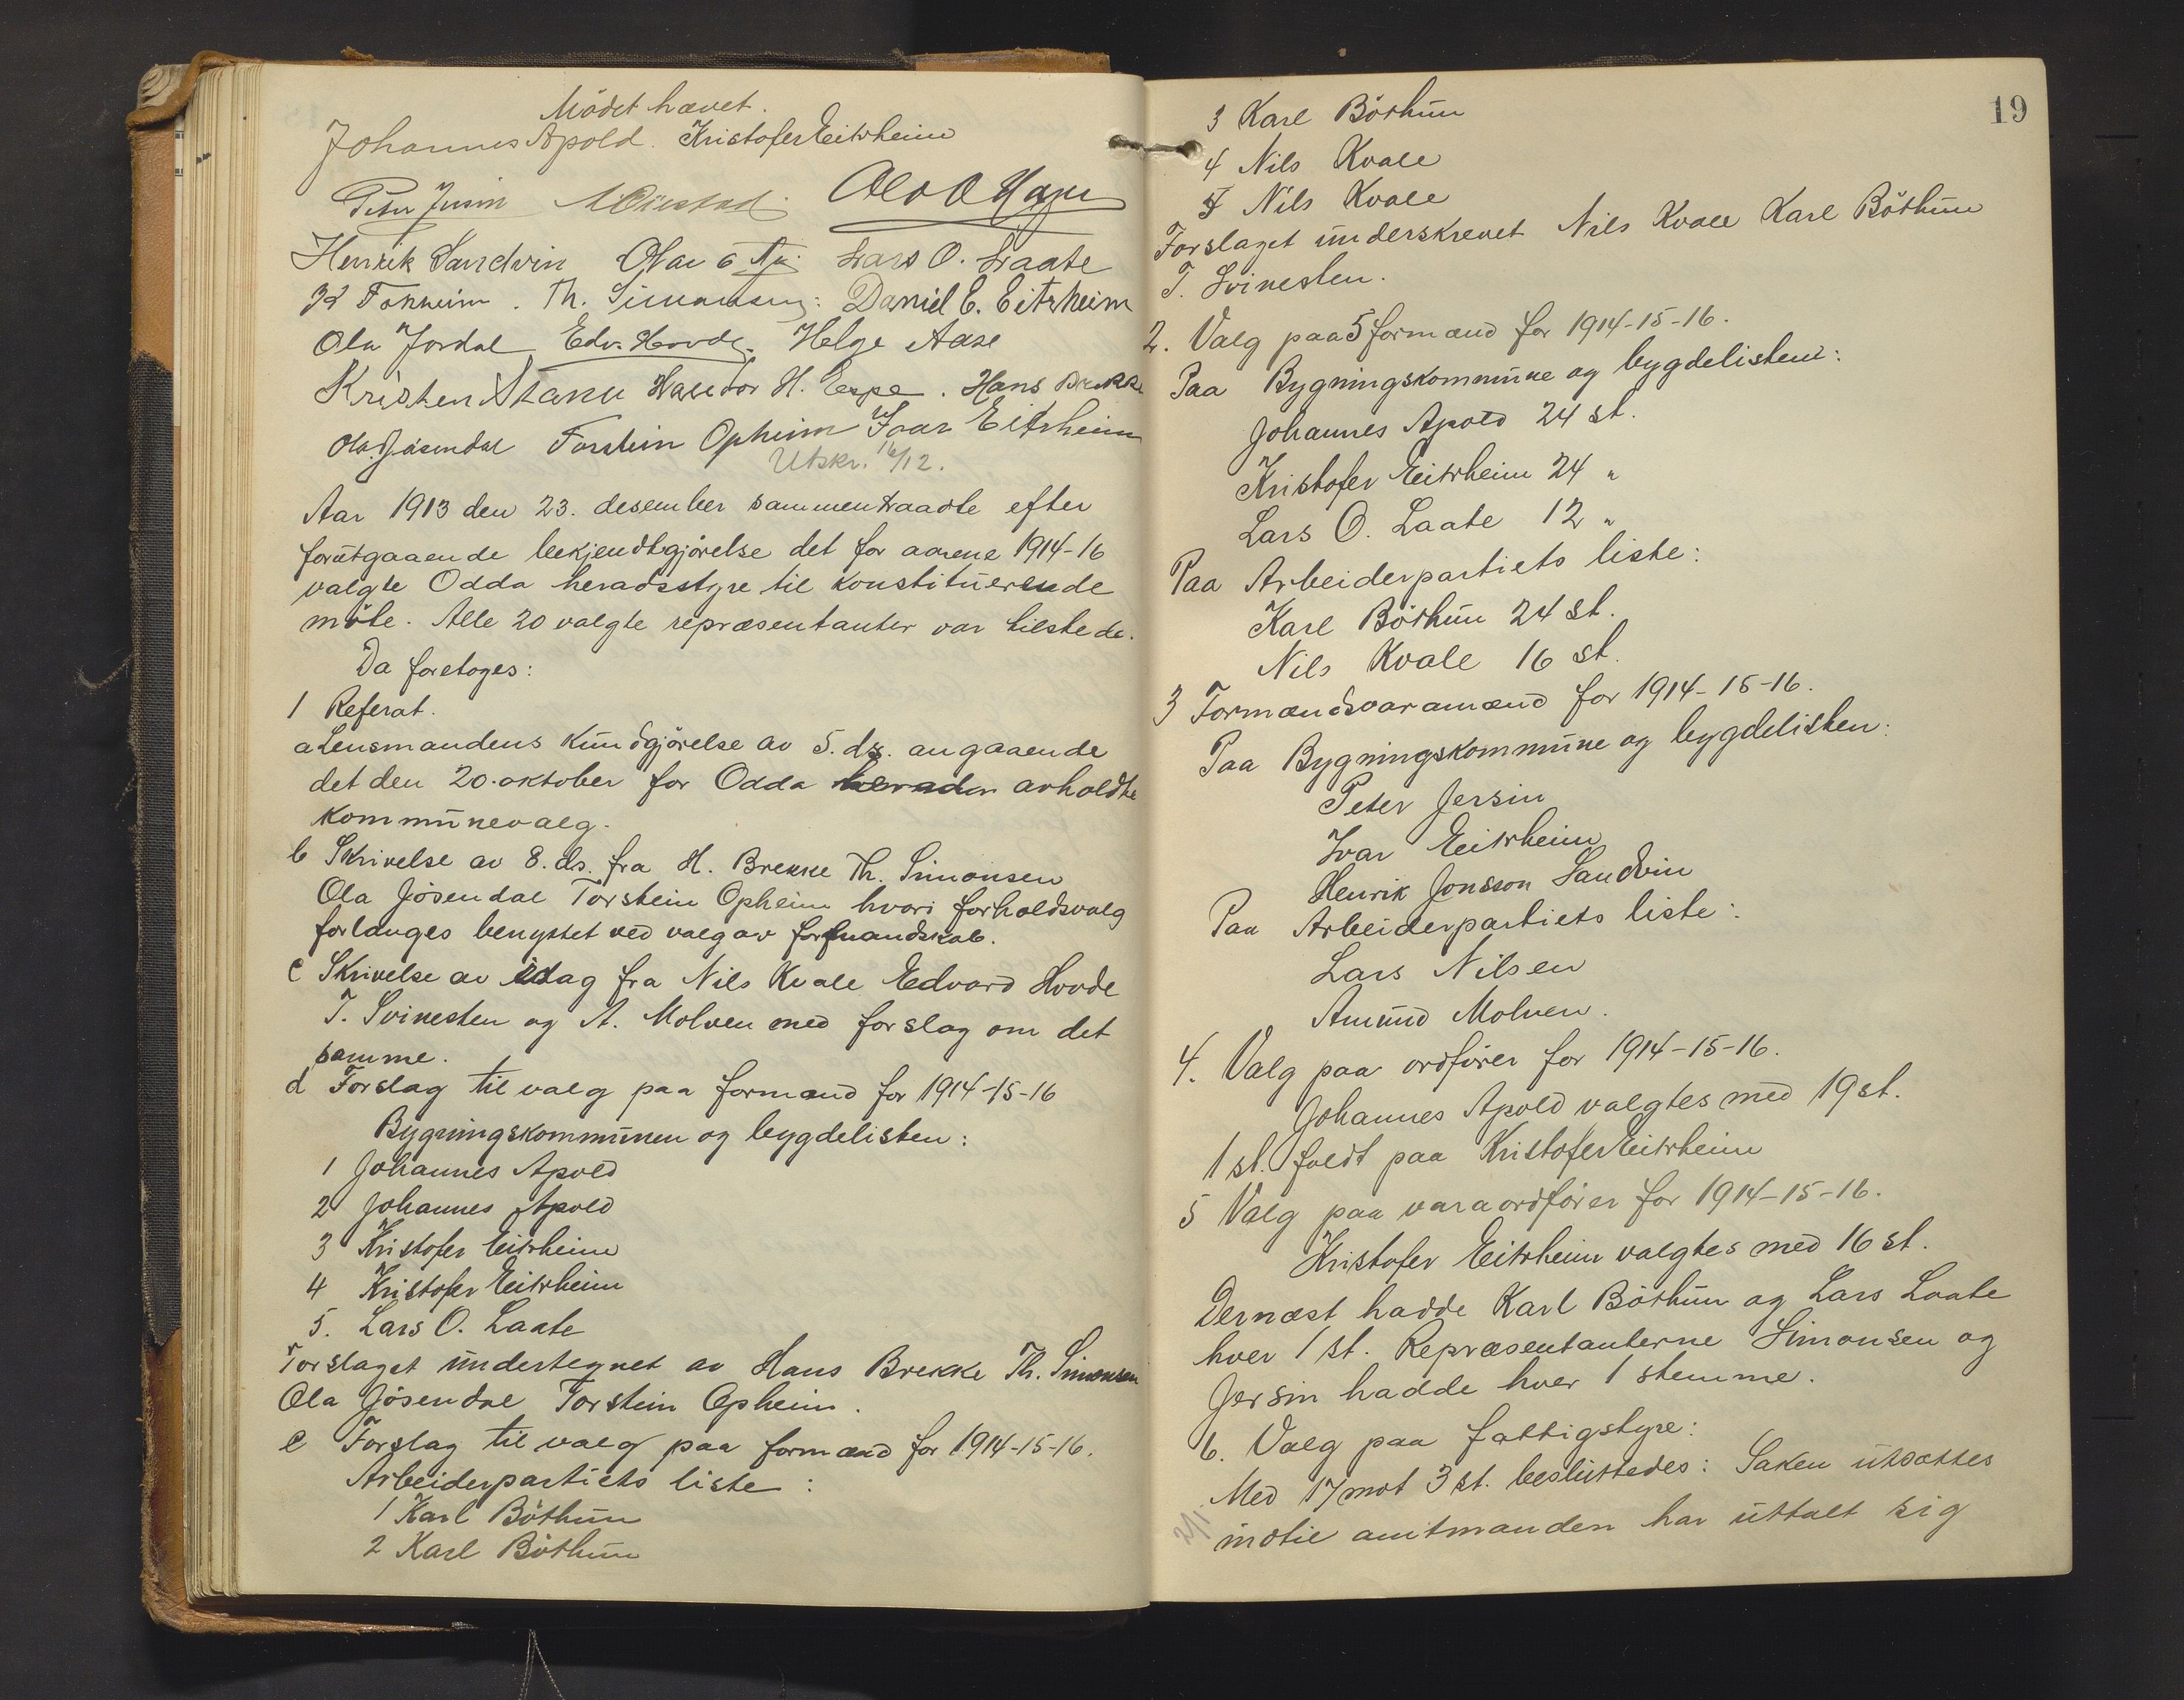 Mödet hævet.
Johannes Apold. Kristofer Eitrheim
Peter Jersin Olav O Hage
Henrik Sandvin Olav Lars O. Laate
K Tokheim. Th. Simonsen. Daniel E. Eitrheim
Ola Jordal Edv. Hovde. Helge Aase
Kristen Stana Halvdor H. Espe. Hans Brekke
Ola Jösendal Torstein Opheim Ivar Eitrheim
Utskr. 16/12.
Aar 1913 den 23. desember sammentraadte efter
forutgaaende bekjendtgjörelse det for aarene 1914-16
valgte Odda heradsstyre til konstituerende
möte. Alle 20 valgte repræsentanter var tilstede.
Da foretoges:
1 Referat.
a Lensmandens kundgjörelse av 5. ds. angaaende
det den 20. oktober for Odda herad avholdte
kommunevalg.
b Skrivelse av 8. ds. fra H. Brekke Th. Simonsen
Ola Jösendal Torstein Opheim hvori forholdsvalg
forlanges benyttet ved valg av formandskab.
c Skrivelse av idag fra Nils Kvale Edvard Hovde
T. Svinesten og A. Molven med forslag om det
samme.
d Forslag til valg paa formænd for 1914-15-16
Bygningskommunen og bygdelisten:
1 Johannes Apold
2 Johannes Apold
3 Kristofer Eitrheim
4 Kristofer Eitrheim
5. Lars O. Laate
Forslaget undertegnet av Hans Brekke Th. Simonsen
Ola Jösendal Torstein Opheim.
e Forslag til valg paa formænd for 1914-15-16.
Arbeiderpartiets liste:
1 Karl Böthun
2 Karl Böthun
19
3 Karl Böthun
4 Nils Kvale
5 Nils Kvale
Forslaget underskrevet Nils Kvale Karl Böthun
T. Svinesten.
2. Valg paa 5 formænd for 1914-15-16.
Paa Bygningskommune og bygdelisten:
Johannes Apold 24 st.
Kristofer Eitrheim 24 "
Lars O. Laate 12 "
Paa Arbeiderpartiets liste:
Karl Böthun 24 st.
Nils Kvale 16 st.
3 Formændsvaramænd for 1914-15-16.
Paa Bygningskommune og bygdelisten:
Peter Jersin
Ivar Eitrheim
Henrik Jonsson Sandvin
Paa Arbeiderpartiets liste:
Lars Nilsen
Amund Molven.
4. Valg paa ordförer for 1914-15-16.
Johannes Apold valgtes med 19 st.
1 st. faldt paa Kristofer Eitrheim
5 Valg paa varaordförer for 1914-15-16.
Kristofer Eitrheim valgtes med 16 st.
Dernæst hadde Karl Böthun og Lars Laate
hver 1 st. Repræsentanterne Simonsen og
Jersin hadde hver 1 stemme.
6. Valg paa fattigstyre:
Med 17 mot 3 st. besluttedes: Saken utsættes
indtil amtmanden har uttalt sig
2/1